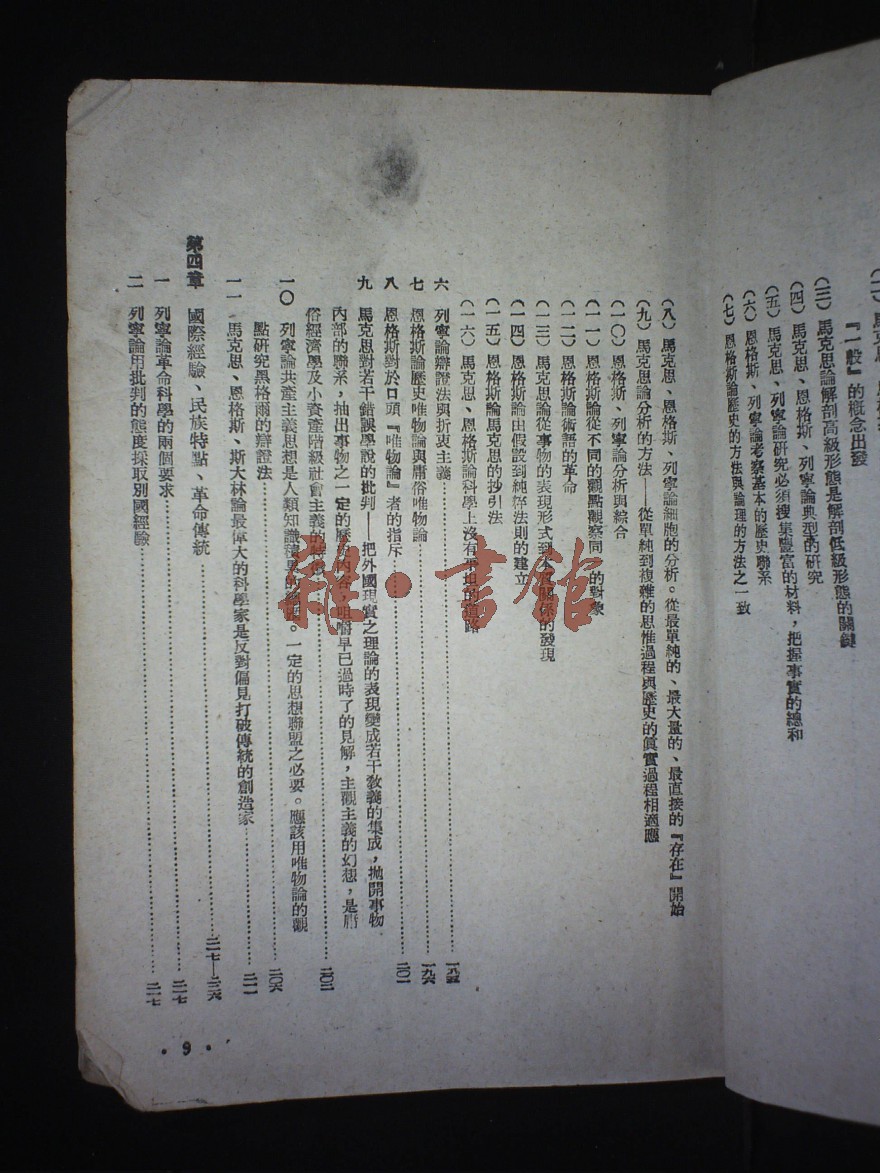 『一般』的概念出發
(三) 馬克思論解剖高級形態是解剖低級形態的關鍵
(四) 馬克思、恩格斯、列寧論典型的研究
(五) 馬克思、列寧論研究必須搜集豐富的材料，把握事實的總和
(六) 恩格斯、列寧論考察基本的歷史聯系
(七) 恩格斯論歷史的方法與論理的方法之一致
(八) 馬克思、恩格斯、列寧論細胞的分析。從最單純的、最大量的、最直接的『存在』開始
(九) 馬克思論分析的方法——從單純到複雜的思惟過程與歷史的眞實過程相適應
(一〇) 恩格斯、列寧論分析與綜合
(一一) 恩格斯論從不同的觀點觀察同一的對象
(一二) 恩格斯論術語的革命
(一三) 馬克思論從事物的表現形式到本質關係的發現
(一四) 恩格斯論由假設到純粹法則的建立
(一五) 恩格斯論馬克思的抄引法
(一六) 馬克思、恩格斯論科學上沒有平坦的道路
六 列寧論辯證法與折衷主義……一八五
七 恩格斯論歷史唯物論與庸俗唯物論……一九六
八 恩格斯對於口頭『唯物論』者的指斥……二〇一
九 馬克思對若干錯誤學說的批判——把外國現實之理論的表現變成若干教義的集成，拋開事物
內部的聯系，抽出事物之一定的歷史內容，咀嚼早已過時了的見解，主觀主義的幻想，是庸
俗經濟學及小資產階級社會主義的特徵……二〇二
一〇 列寧論共產主義思想是人類知識積累的總匯。一定的思想聯盟之必要。應該用唯物論的觀
點研究黑格爾的辯證法……二〇六
一一 馬克思、恩格斯、斯大林論最偉大的科學家是反對偏見打破傳統的創造家……二一一
第四章 國際經驗、民族特點、革命傳統……二一七—二二六
一 列寧論革命科學的兩個要求……二一七
二 列寧論用批判的態度採取別國經驗……二一七
· 9 ·
雅·書館